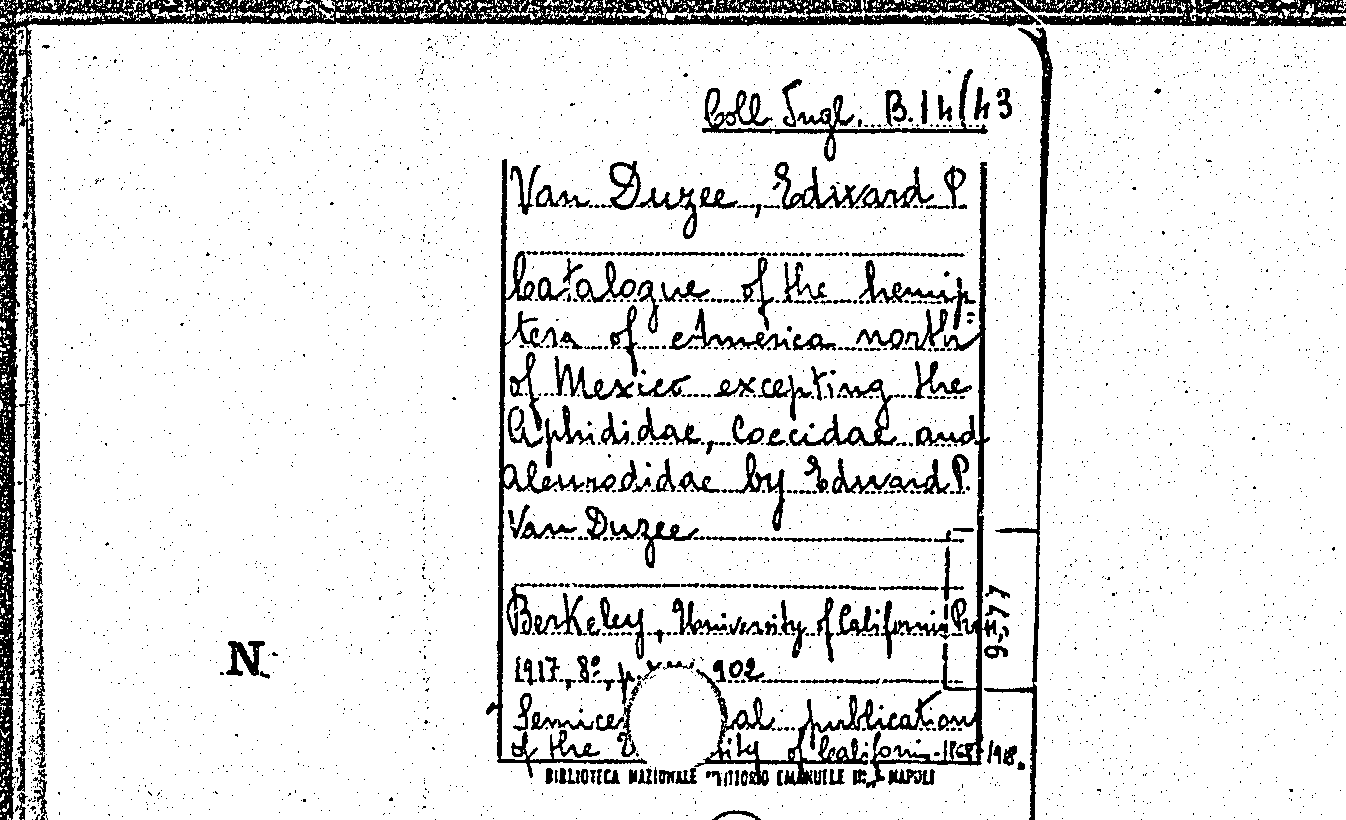 Coll Ingl. B. 14/43
Van Duzee, Edward P
Catalogue of the hemip=
tera of America north
of Mexico excepting the
Aphididae, Coccidae and
aleurodidae by Edward P.
Van Duzee
Berkeley, University of California Pr
9,77
N
1917, 8º, p. 902
Semice al publication
of the U sity of Californi-1868-1918.
BIBLIOTECA NAZIONALE "VITTORIO EMANUELE III" NAPOLI